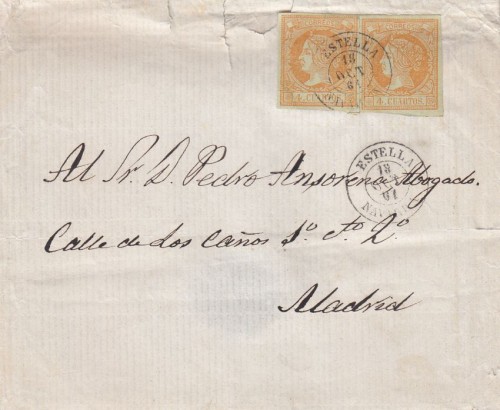 CORREOS
4 CUARTOS
4 CUARTOS
ESTELLA
18
OCT
61
ESTELLA
18
61
Al Sr. D. Pedro Ansorena Abogado.
Calle de Los Caños 1º cto 2º
Madrid